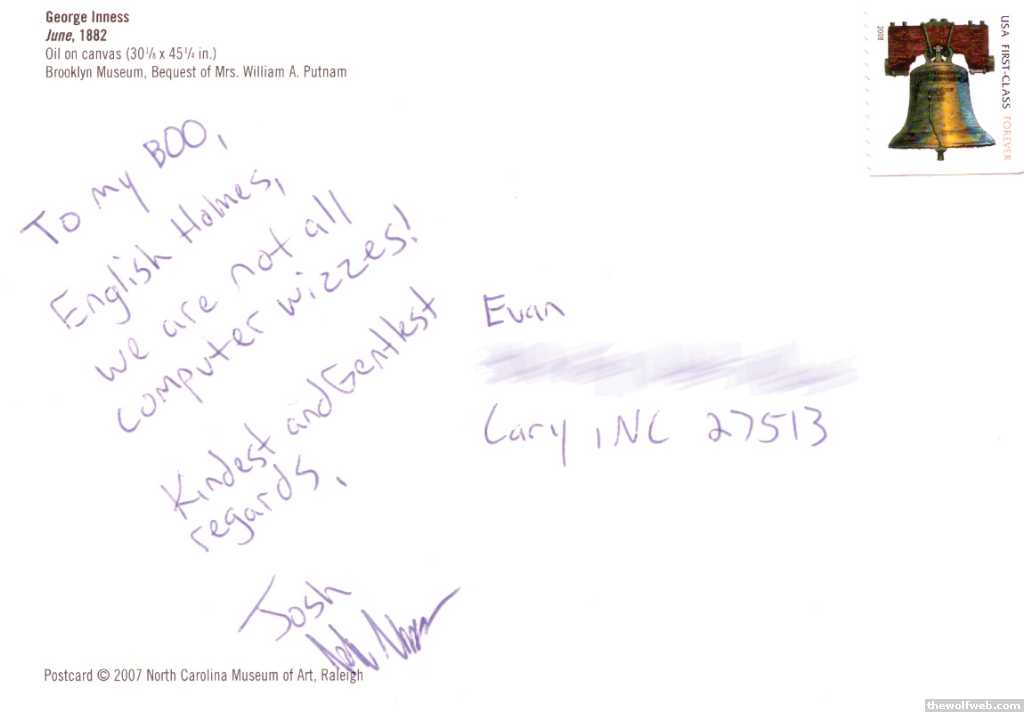 George Inness
June, 1882
Oil on canvas (30 1/8 x 45 1/4 in.)
Brooklyn Museum, Bequest of Mrs. William A. Putnam
2008
USA FIRST-CLASS FOREVER
To my BOO,
English Holmes,
we are not all
computer wizzes!
Kindest and Gentlest
regards,
Josh
Evan
Cary, NC 27513
Postcard © 2007 North Carolina Museum of Art, Raleigh
thewolfweb.com